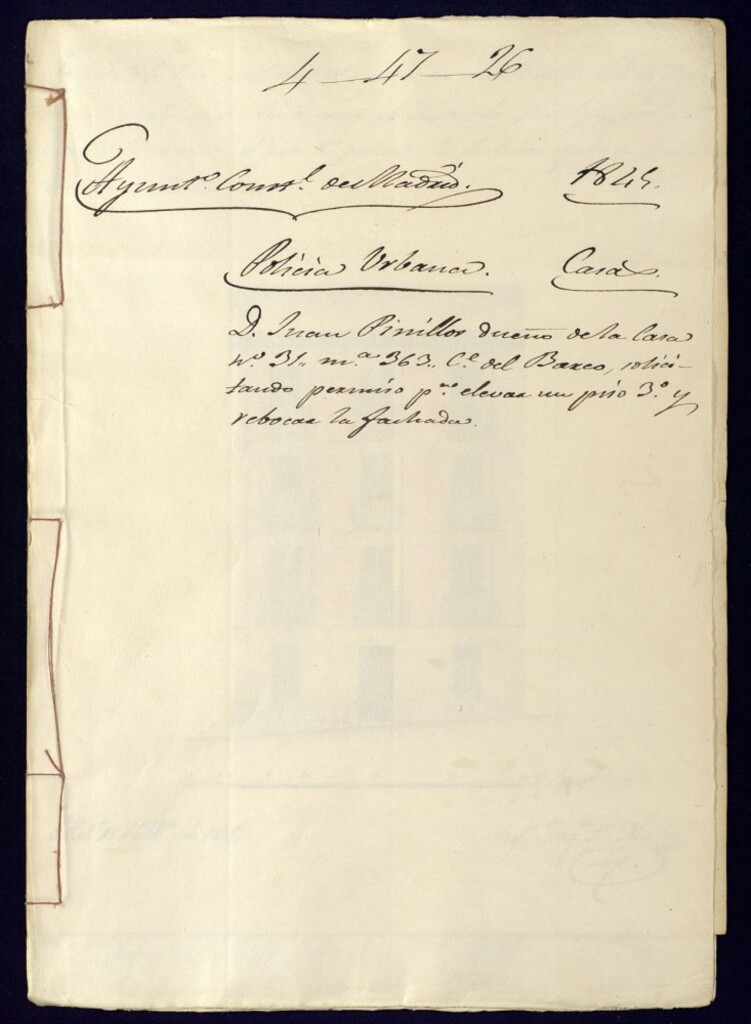 4-47-26
Ayuntº. Constl. de Madrid. 184
Policía Urbana. Casas.
D. Juan Pinillos dueño de la Casa
nº 31,, mª 363,, C.e del Barco, solici-
tando permiso pª elevar un piso 3º y
revocar la fachada.